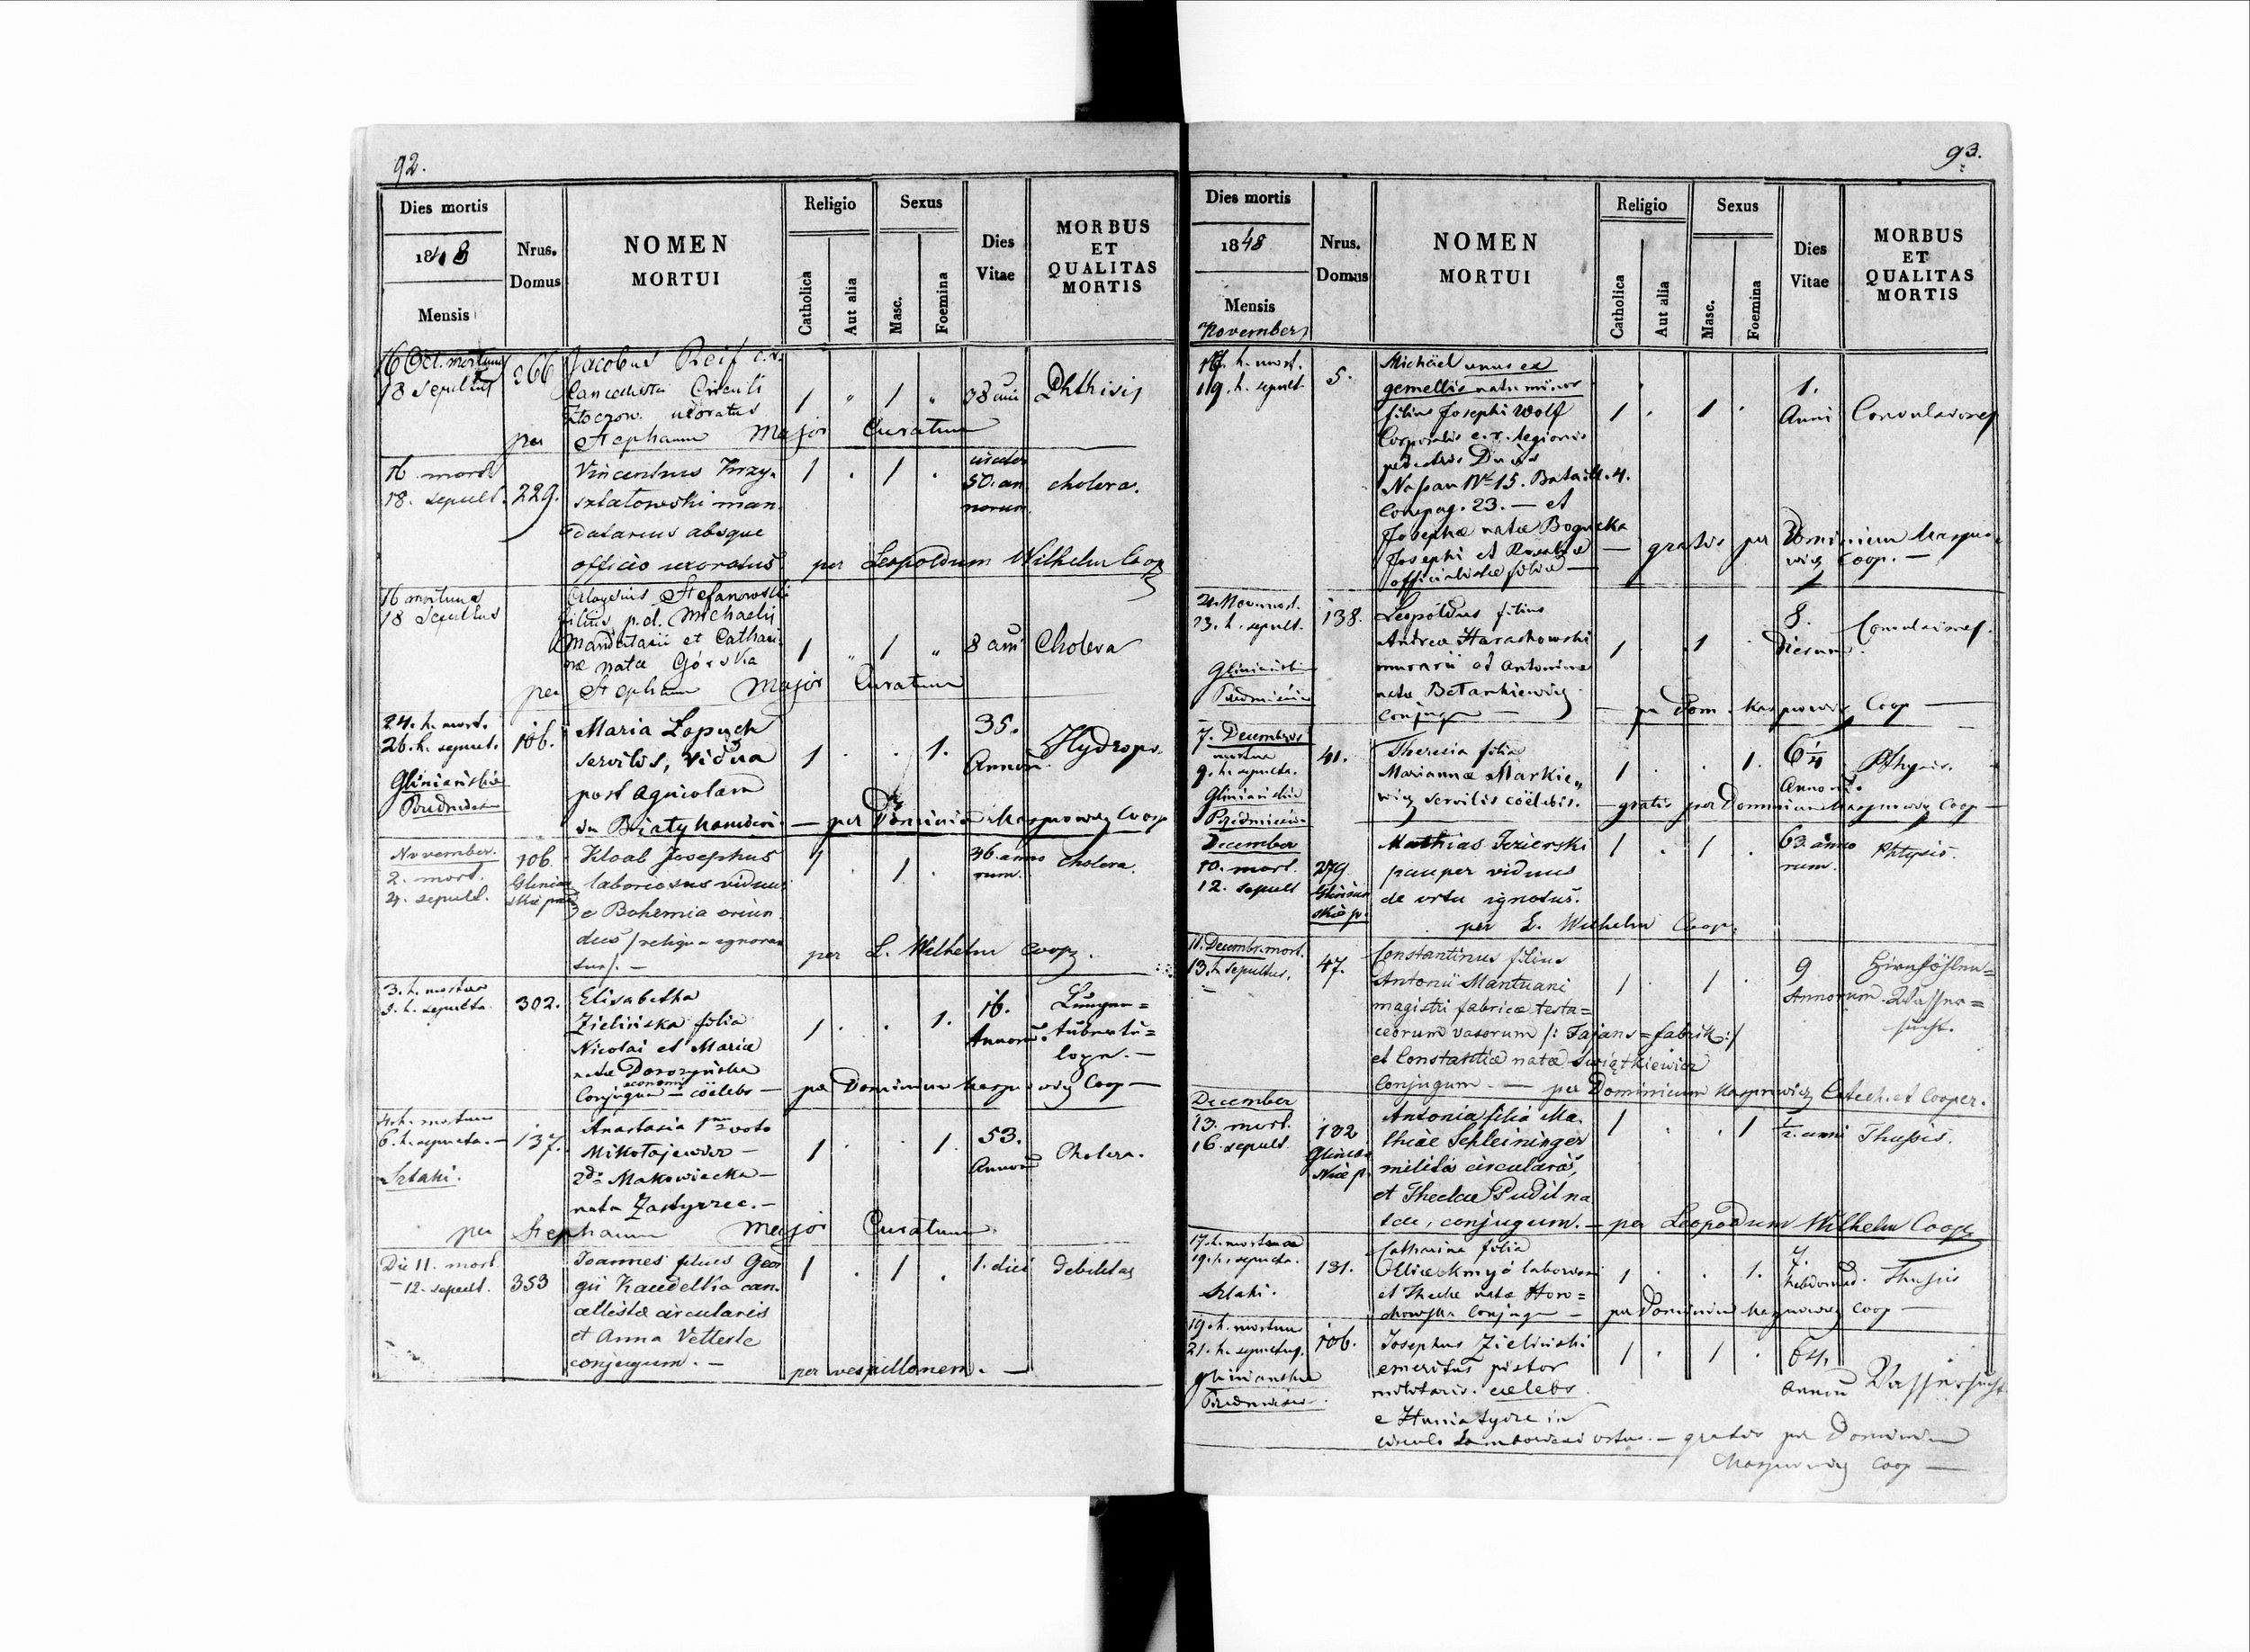 92.
Dies mortis
1848
Mensis
Nrus.
Domus
NOMEN
MORTUI
Religio
Catholica
Aut alia
Sexus
Masc.
Foemina
Dies
Vitae
MORBUS
ET
QUALITAS
MORTIS
16 Oct. mortuus
18 Sepultus
366
Jacobus Reif c. r.
Cancelista Circuli
Złoczow. uxoratus
1 " 1 "
38 anni
Phthisis
per Stephanum Major Curatum
16 mort.
18. sepult.
229.
Vincentius Krzy-
sztatowski man-
datarius absque
officio uxoratus
1 . 1 .
circiter
50. an
norum
cholera.
per Leopoldum Wilhelm Coop
16 mortuus
18 Sepultus
Stefanowski
filius p. d. Michaelis
Mandatarii et Cathari-
nae natae Górska
1 " 1 "
8 ann
Cholera
per Stephanum Major Curatum
24. h. mort.
26. h. sepult.
Gliniańskie
106.
Maria Lopuch
servilis, vidua
post agricolam
in Białykamień.
1 . . 1.
35.
Annorum.
Hydrops.
— per Dominicum Kasprowicz Coop
November.
2. mort.
4. sepult.
106.
Glinian
skie
Kloab Josephus
laboriosus viduus
e Bohemia oriun
dus / religio ignoran
tur/. —
1 . 1 .
46. anno
rum.
cholera.
per L. Wilhelm Coop.
3. h. mortua
5. h. sepulta.
302.
Elisabetha
Zielińska filia
Nicolai et Mariae
natae Doroszyńska
economi
Conjugum — coelebs —
1 . . 1.
16.
Annorum.
Lungen=
tuberku=
lose. —
per Dominicum Kasprowicz Coop —
4. h. mortua
6. h. sepulta. —
Szlaki.
137.
Anastasia 1mo voto
Mikołajewicz —
2do Makowiecka —
nata Zastyrzec. —
1 . . 1.
53.
Annorum
Cholera.
per Stephanum Major Curatum.
Die 11. mort
— 12. sepult.
353
Joannes filius Geor
gii Kaudelka can-
cellistae circularis
et Anna Vetterle
conjugum. —
1 . 1 .
1. diei
debilitas
per vespillonem. —
93.
Dies mortis
1848
Mensis
November
Nrus.
Domus
NOMEN
MORTUI
Religio
Catholica
Aut alia
Sexus
Masc.
Foemina
Dies
Vitae
MORBUS
ET
QUALITAS
MORTIS
h. mort.
19. h. sepult.
5.
Michael unus ex
gemellis natu minor
filius Josephi Wolf
Corporalis c. r. Legionis
pedestris Ducis
Nassau No 15. Bataill. 4.
Compag. 23. — et
Josephae natae Bogucka
Josephi et Rosaliae
officialistae filiae —
1 . 1 .
1.
Anni
Convulsiones
— gratis per Dominicum Kaspro-
wicz Coop. —
21. Nov. mort.
23. h. sepult.
Gliniańskie
138.
Leopoldus filius
Andreae Haraskowski
murarii et Antoninae
natae
Conjugum —
1 . 1 .
8.
Dierum
Convulsiones.
— per Dom. Kasprowicz Coop —
7. Decembris
mortua
9. h. sepulta.
Gliniańskie
Przedmieście
41.
Theresia filia
Mariannae Markie„
wicz servilis coëlebis.
1 . . 1.
6 1/4
Annorum.
Phtysis.
— gratis per Dominicum Kasprowicz Coop —
December
10. mort.
12. sepult
279
Glinian
skie p.
Mathias Jezierski
pauper viduus
de ortu ignotus.
1 . 1 .
63. anno
rum.
Phtysis.
per L. Wilhelm Coop.
11. Decembr. mort.
13. h. sepultus.
47.
Constantinus filius
Antonii Mantuani
magistri fabricae testa=
ceorum vasorum /: Fajans=fabrik:/
et Constantiae natae Swiątkiewicz
Conjugum. — per Dominicum Kasprowicz Catech. et Cooper.
1 . 1 .
9
Annorum.
Hirnhöhlen=
Wasser=
sucht.
December
13. mort.
16. sepult
182
Glinian
skie p.
Antonia filia Ma-
thiae Schleininger
militis circularis,
et Theclae Pudil na
tae, conjugum. — per Leopoldum Wilhelm Coop
1 . . 1
1/2. anni
Thussis.
17. h. mortua
19. h. sepulta.
Szlaki.
131.
Catharina filia
laboriosi
et Theclae natae Horo=
Conjugum —
1 . . 1.
7.
hebdomad.
Thussis
per Dominicum Kasprowicz Coop —
19. h. mortuus
21. h. sepultus.
gliniańskie
106.
Josephus Zieliński
emeritus pistor
militaris. caelebs
e
circulo ortus. — gratis per Dominicum
Kasprowicz Coop —
1 . 1 .
64.
Annorum
Wassersucht.